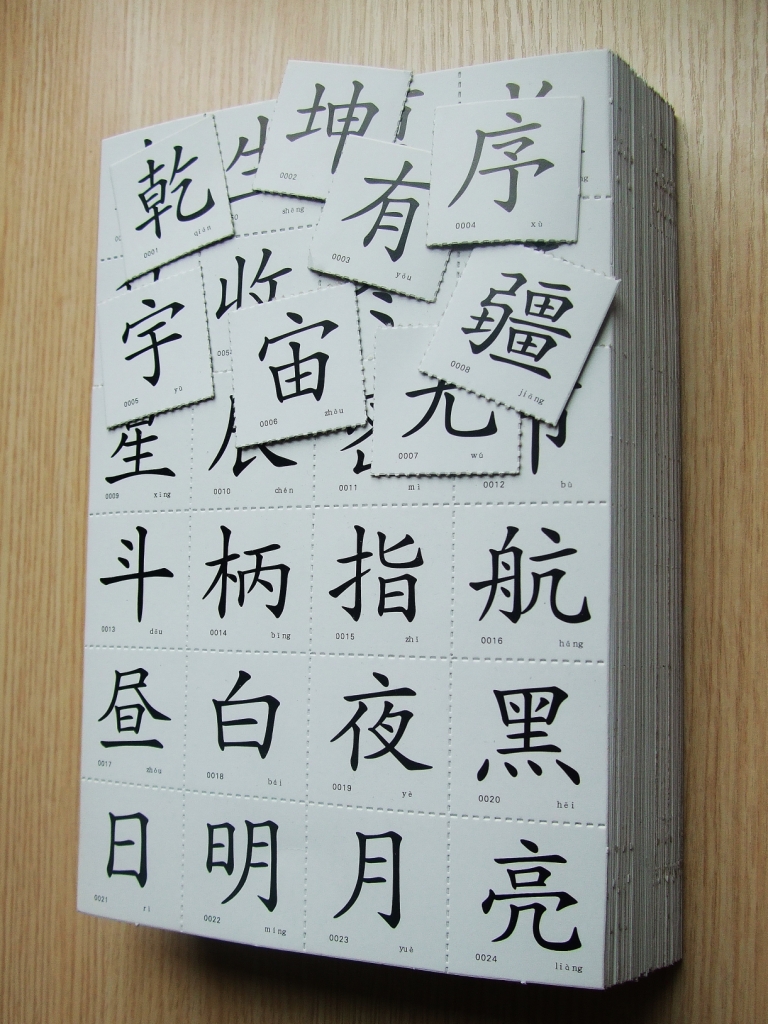 乾 坤 有 序
0001 qián 0002 0003 yǒu 0004 xù
宇 宙 无 疆
0005 yǔ 0006 zhòu 0007 wú 0008 jiāng
生 shēng
收
星 辰
0009 xīng 0010 chén 0011 mì 0012 bù
斗 柄 指 航
0013 dǒu 0014 bǐng 0015 zhǐ 0016 háng
昼 白 夜 黑
0017 zhòu 0018 bái 0019 yè 0020 hēi
日 明 月 亮
0021 rì 0022 míng 0023 yuè 0024 liàng